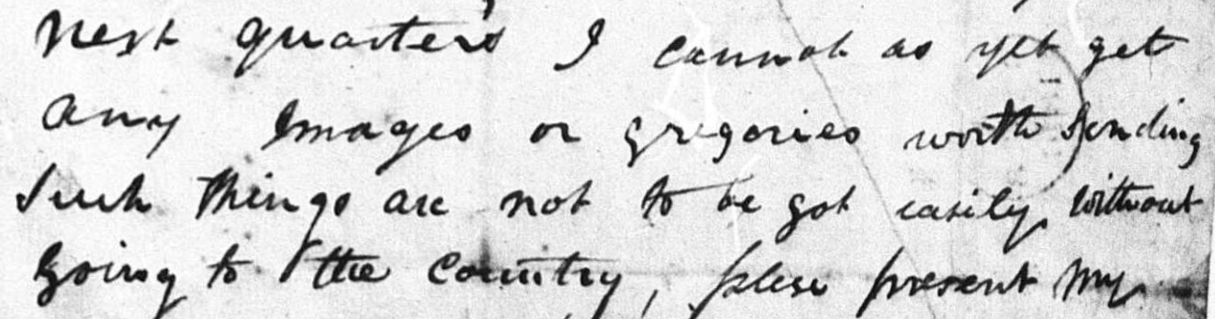 next quarters I cannot as yet get
any Images or gregories worth Sending
Such things are not to be got easily without
going to the Country, plese present My